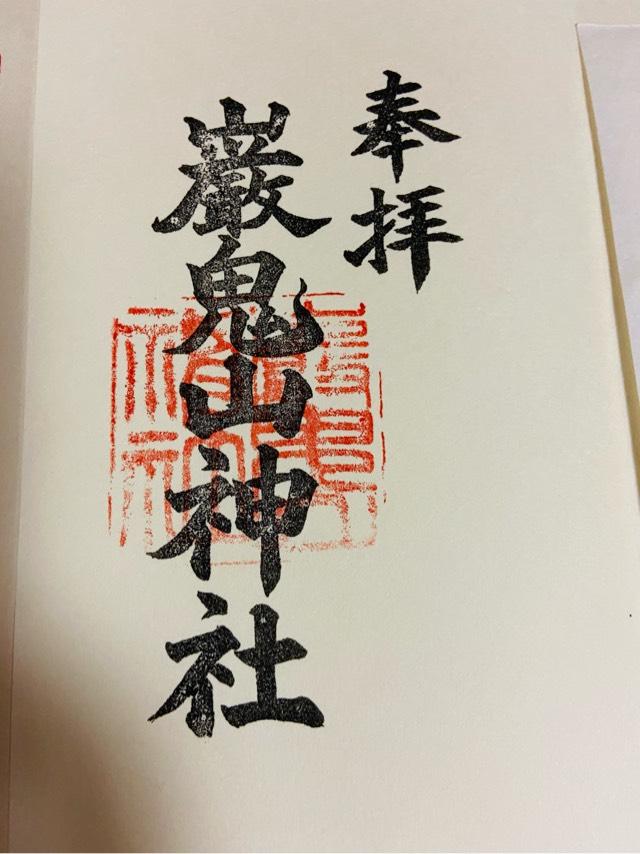 奉拝
巖鬼山神社